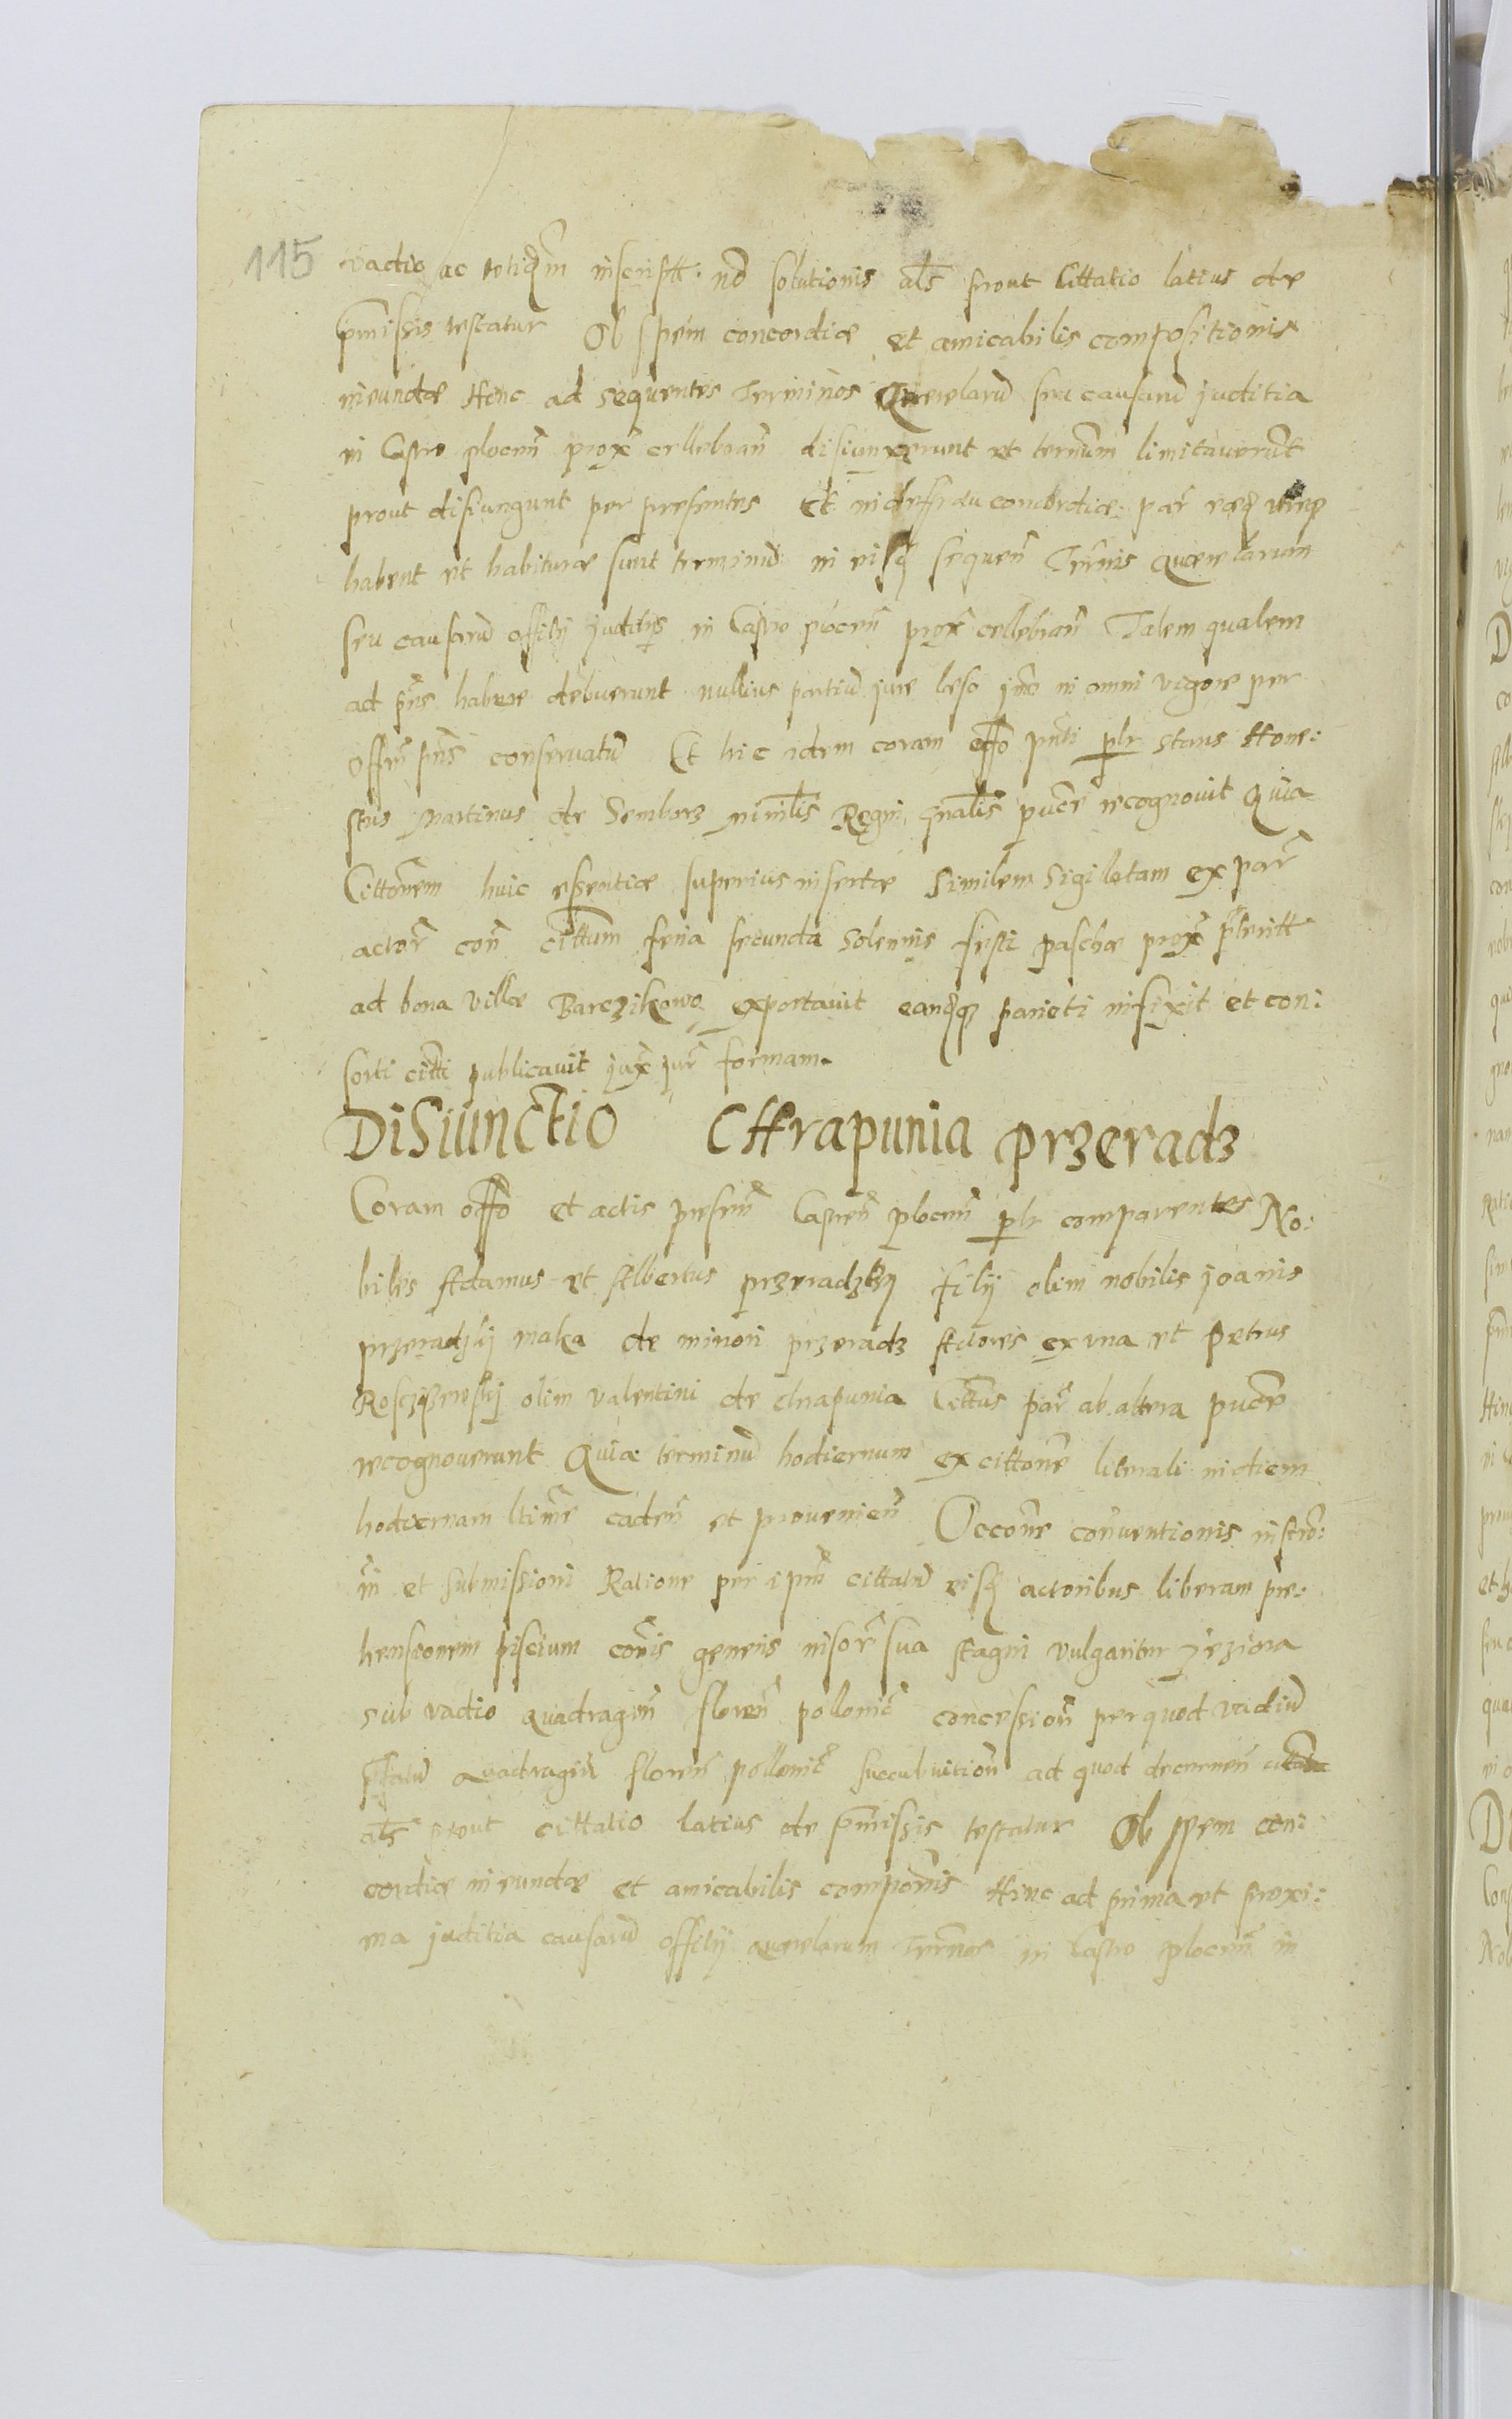 115
vadio ac totiq̃m inscriptt: nõ solutionis als̃ prout Cittatio latius de
p̃missis testatur Ob spem concordiæ et amicabilis compositionis
ineundæ Hinc ad sequentes Terminos Querelarũ seu causarũ juditia
in Castro plocen̄ prox̃ cellebran̄ disiunxerunt et termĩnum limitaverũnt
prout disiungunt per presentes Et in deffectu concordiæ par̃
habent et habituræ sunt terminũ in eisd̃ sequen̄ Termĩs Quærelarum
seu causarũ offitij juditijs in Castro plocen̄ prox̃ cellebran̄ Talem qualem
ad p̃ns habere debuerunt nullius partiũ jure læso imo in omni vigore per
Offm̃ p̃ns conservatũ Et hic idem coram offo p̃nti pl̃r stans Hone:
stus Martinus de Semborz mĩnlis Regni gñalis pucẽ recognovit Quia
Cittõnem huic essentiæ superius insertæ similem sigilatam ex par̃
actor̃ con̄ cittũm feria secunda solennis festi paschæ prox̃ p̃teritt
ad bona villæ Barczikowo exportavit eandq̃ parieti infixit et con:
sorti citti publicavit jux̃ jur̃ formam.
Disiunctio Chrapunia Przeradz
Coram offo et actis presen̄ Castren̄ plocen̄ pl̃r comparentes No:
biles Adamus et Albertus przeradzkij filij olim nobilis joanis
przeradzkij maka de minori przeradz Actores ex una et Petrus
Rosciszewskij olim valentini de chrapunia Citt̃us par̃ ab altera pucẽ
recognoverunt Quia terminũ hodiernum ex cittõne literali in diem
hodiernam ltimẽ caden̄ et provenien̄ Occõne conventionis inscrõ:
m̃ et submissioni Ratione per ipm̃ cittatũ eisd̃ actoribus liberam pre:
hensionem piscium com̃is generis in sor̃ sua stagni vulgariter jeziora
sub vadio quadragin̄ floren̄ polloniĉ concession̄ per quod vadiũ
p̃fatũ Quadragin̄ floren̄ polloniĉ succubuition̄ ad quod decernen̄
als̃ prout cittatio latius de p̃missis testatur Ob spem con:
cordiæ ineundæ et amicabilis compõnis Hinc ad prima et proxi:
ma juditia causarũ offitij querelarum Termĩnos in Castro plocen̄ in